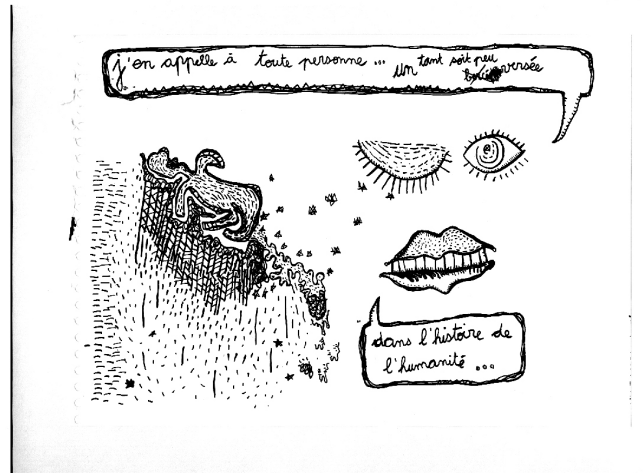 j'en appelle à toute personne ... un tant soit peu
dans l'histoire de
l'humanité ...